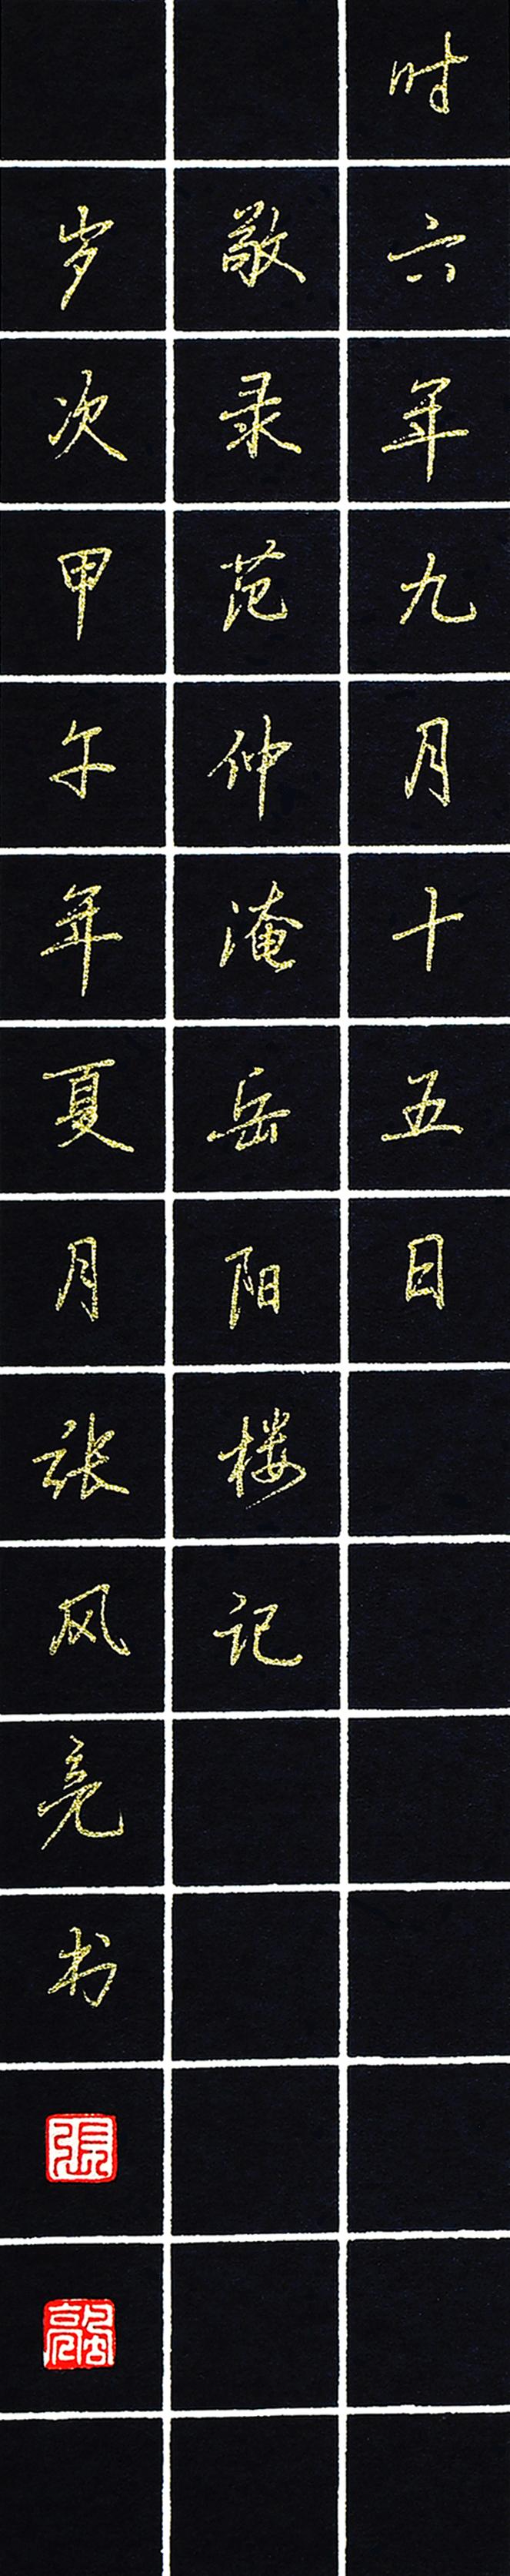 时六年九月十五日
敬录范仲淹岳阳楼记
岁次甲午年夏月张风亮书
張
風亮